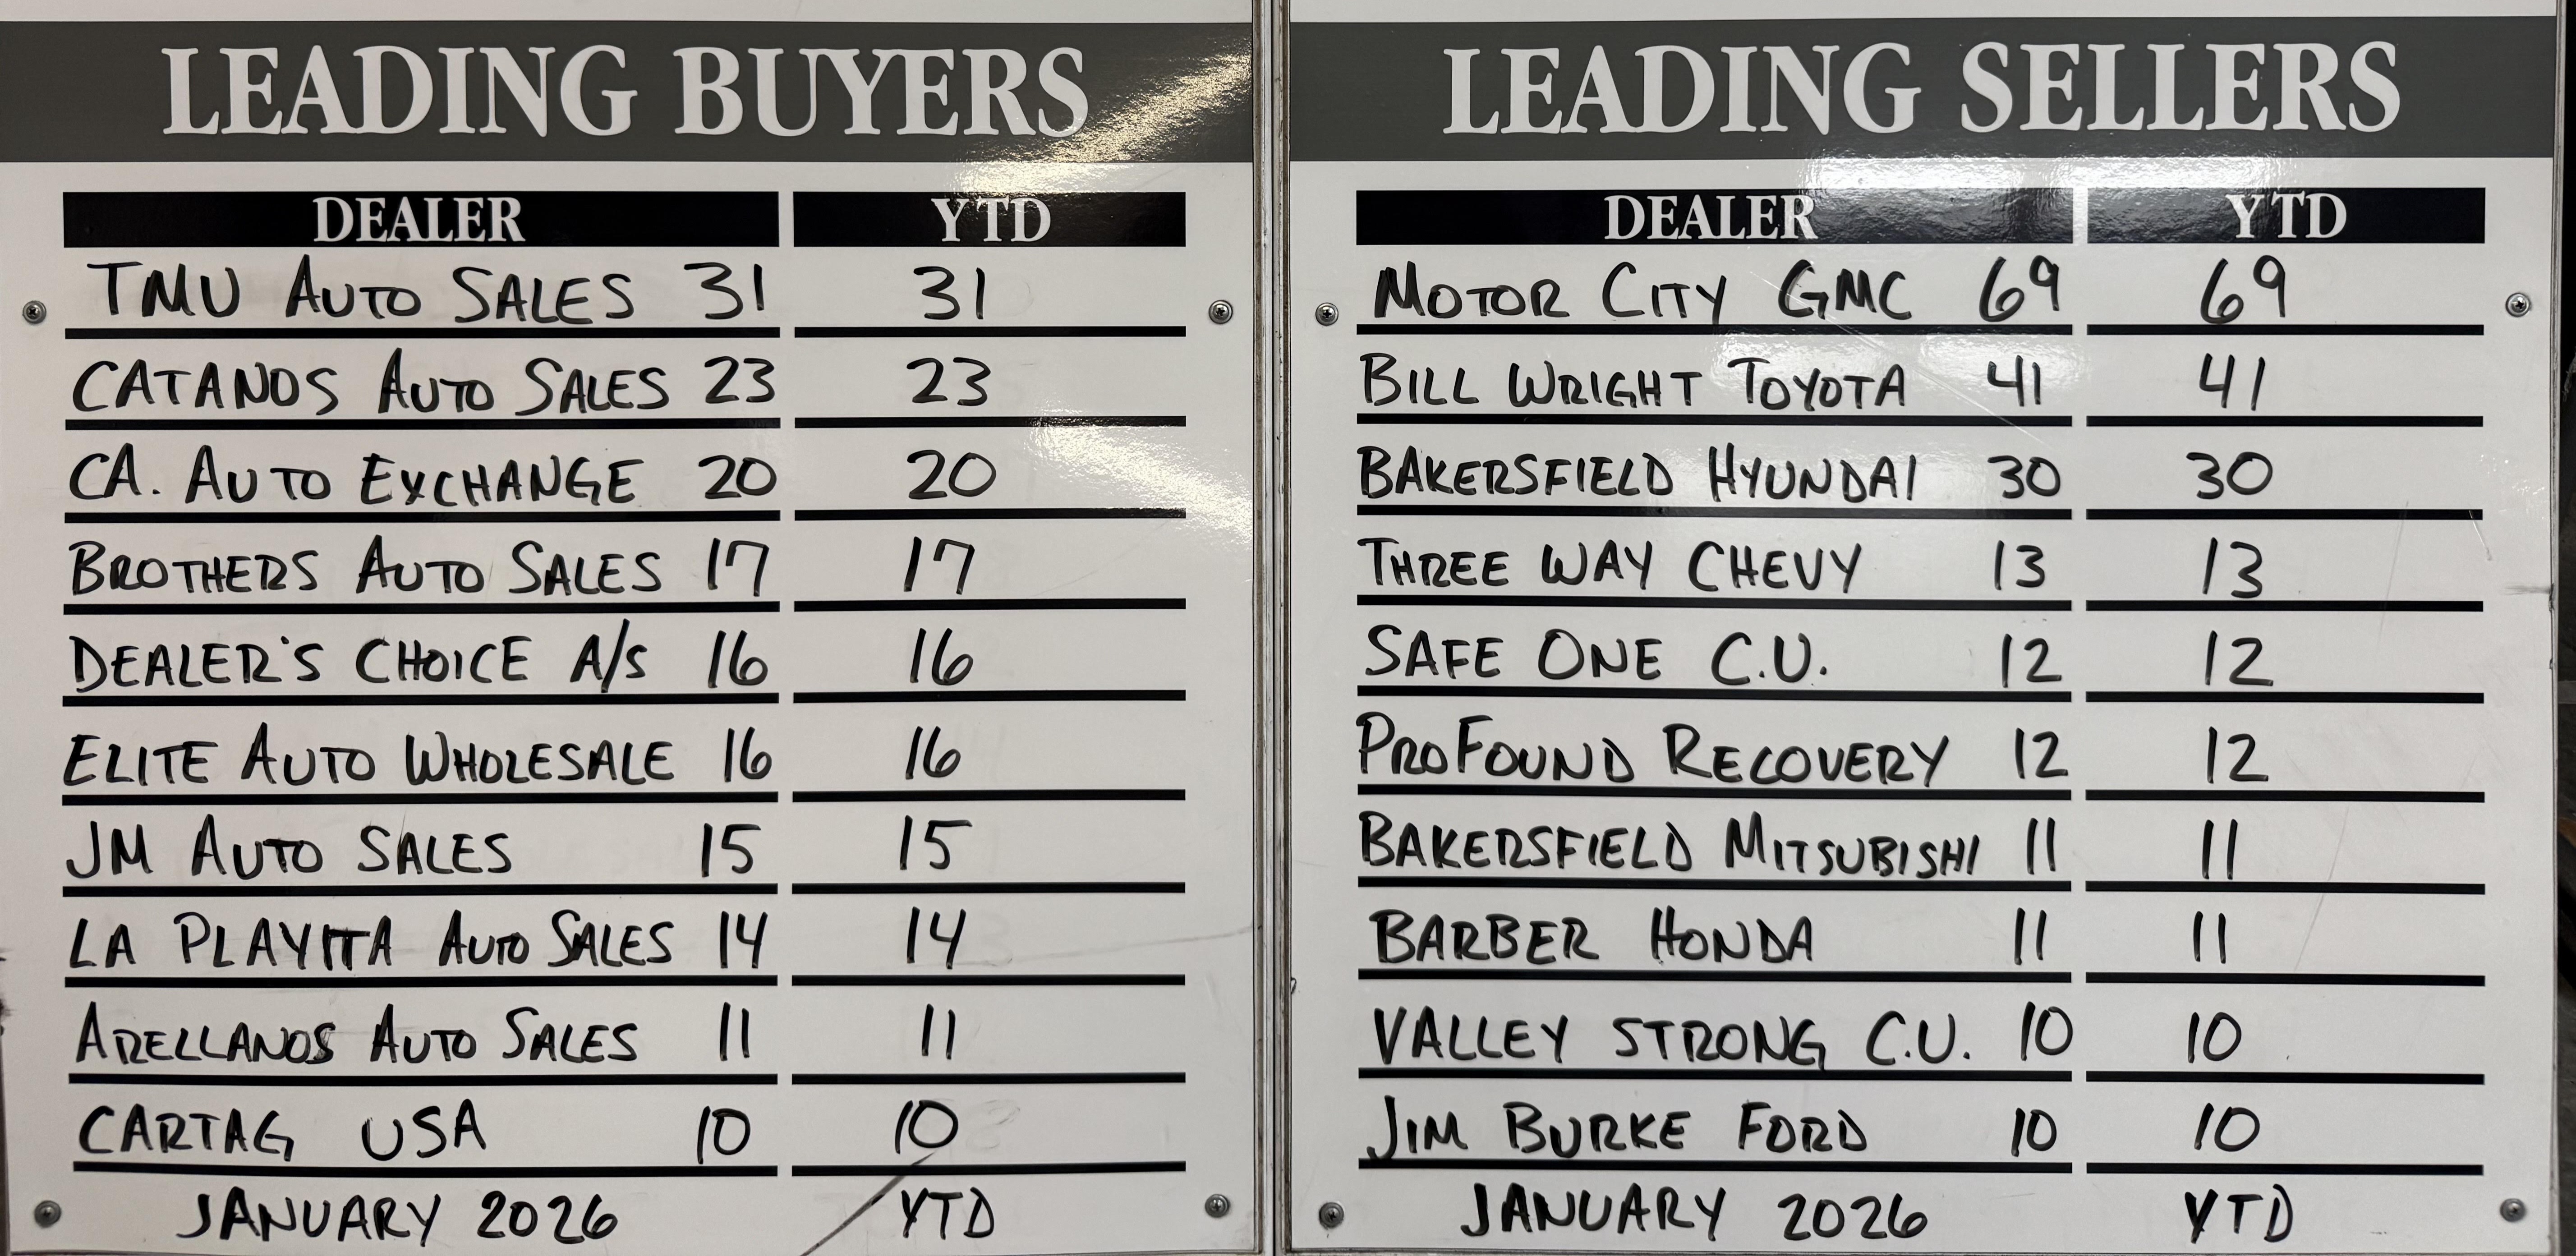 LEADING BUYERS
DEALER YTD
TMU AUTO SALES 31 31
CATANOS AUTO SALES 23 23
CA. AUTO EXCHANGE 20 20
BROTHERS AUTO SALES 17 17
DEALER'S CHOICE A/S 16 16
ELITE AUTO WHOLESALE 16 16
JM AUTO SALES 15 15
LA PLAYITA AUTO SALES 14 14
ARELLANOS AUTO SALES 11 11
CARTAG USA 10 10
JANUARY 2026 YTD
LEADING SELLERS
DEALER YTD
MOTOR CITY GMC 69 69
BILL WRIGHT TOYOTA 41 41
BAKERSFIELD HYUNDAI 30 30
THREE WAY CHEVY 13 13
SAFE ONE C.U. 12 12
PROFOUND RECOVERY 12 12
BAKERSFIELD MITSUBISHI 11 11
BARBER HONDA 11 11
VALLEY STRONG C.U. 10 10
JIM BURKE FORD 10 10
JANUARY 2026 YTD